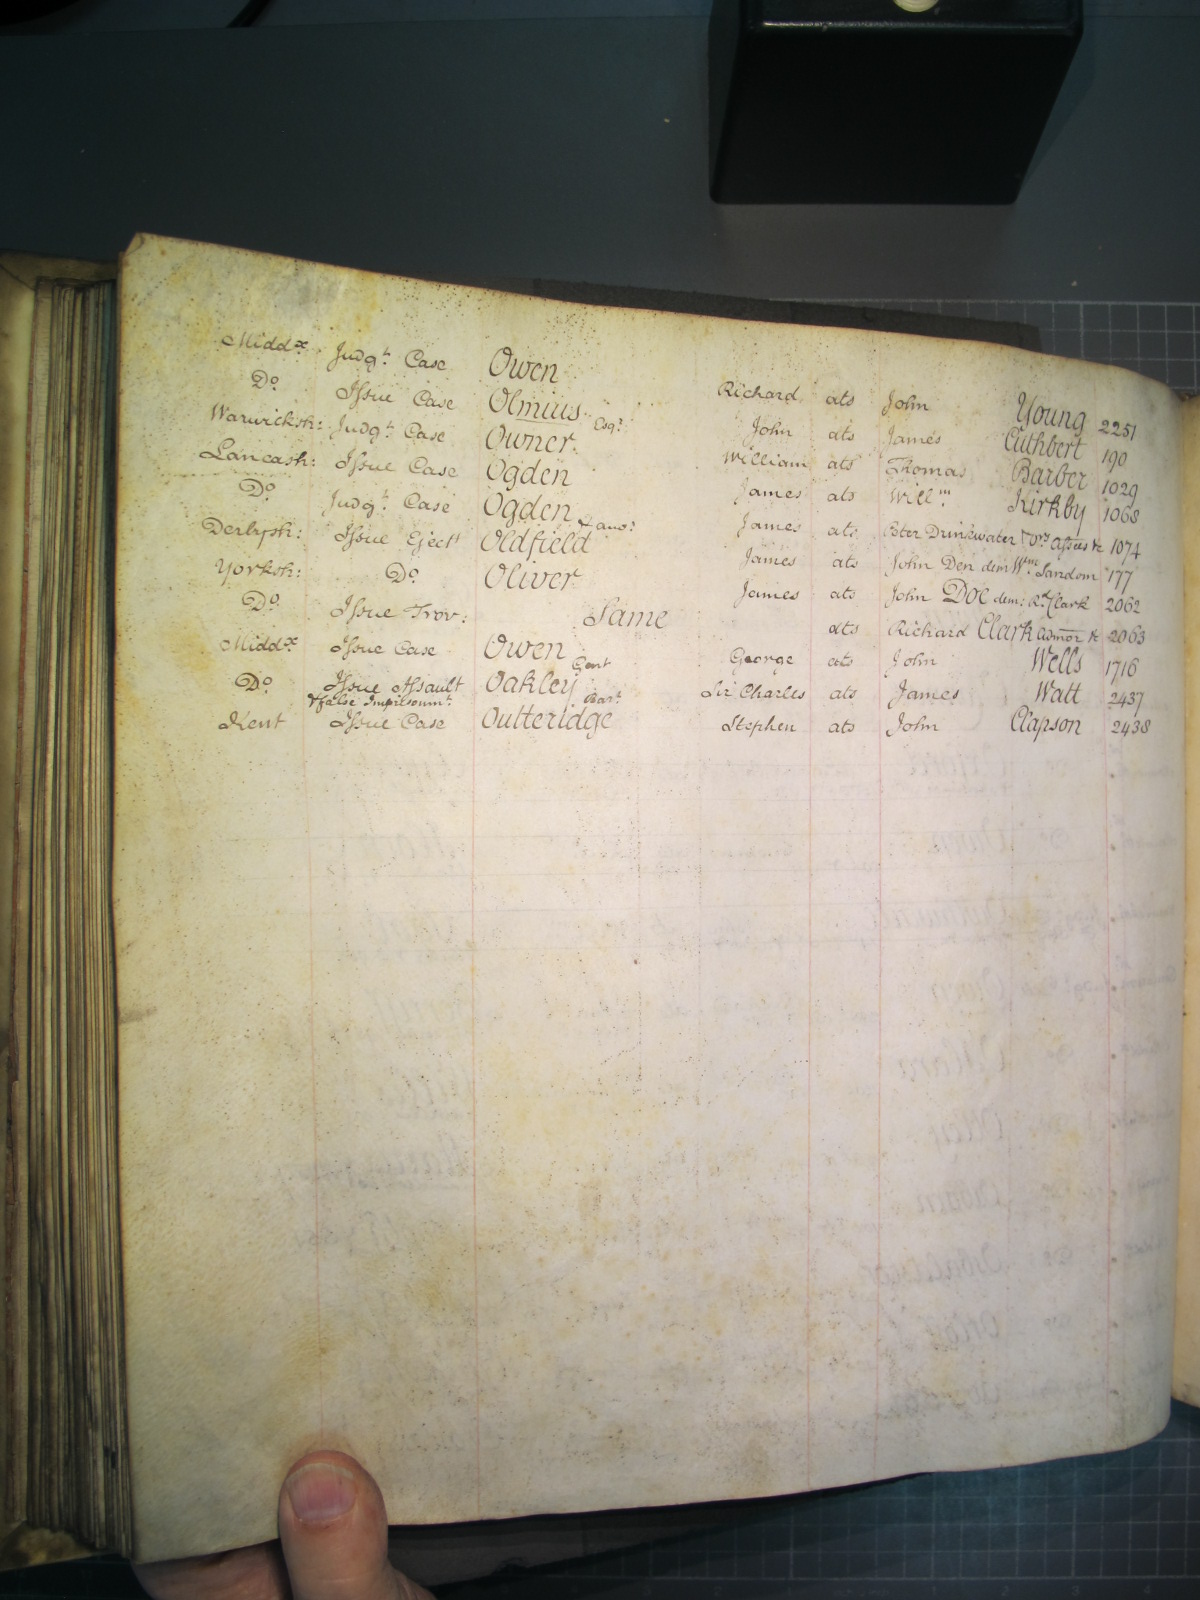 Middx Judgt Case Owen Richard ats John Young 2251
Do Issue Case Olmius Esqr John ats James Cuthbert 190
Warwicksh: Judgt Case Owner William ats Thomas Barber 1029
Lancash: Issue Case Ogden James ats Willm Kirkby 1068
Do Judgt Case Ogden & anor James ats Peter Drinkwater & ors Assees &c 1074
Derbysh: Issue Ejectt Oldfield James ats John Den dem Wm Sandom 177
Yorksh: Do Oliver James ats John Doe dem: Rd Clark 2062
Do Issue Trov: Same ats Richard Clark admor &c 2063
Middx Issue Case Owen Gent George ats John Wells 1716
Do Issue Assault & false Imprisonmt Oakley Bart Sir Charles ats James Watt 2437
Kent Issue Case Outteridge Stephen ats John Clapson 2438